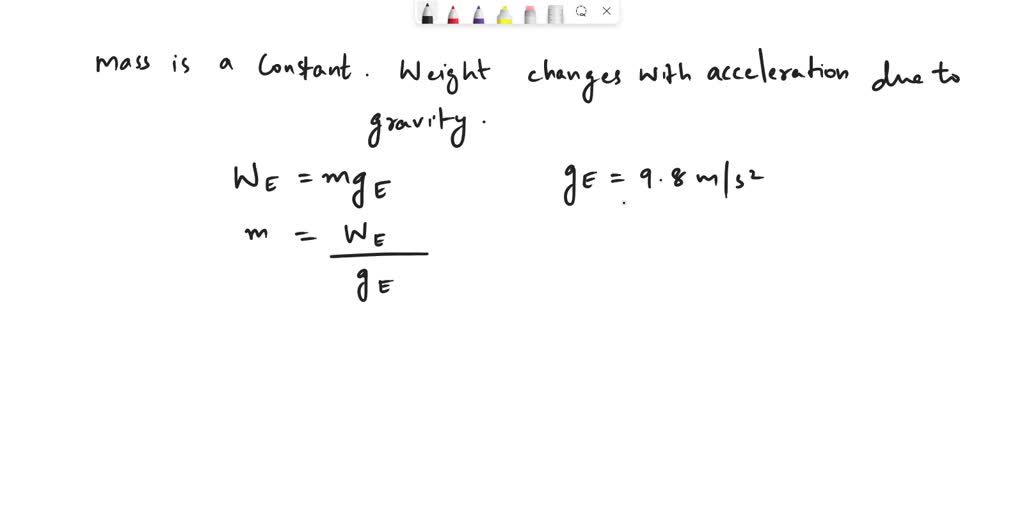 mass is a constant. Weight changes with acceleration due to
gravity.
W_E = mg_E
g_E = 9.8 m/s²
m = W_E / g_E